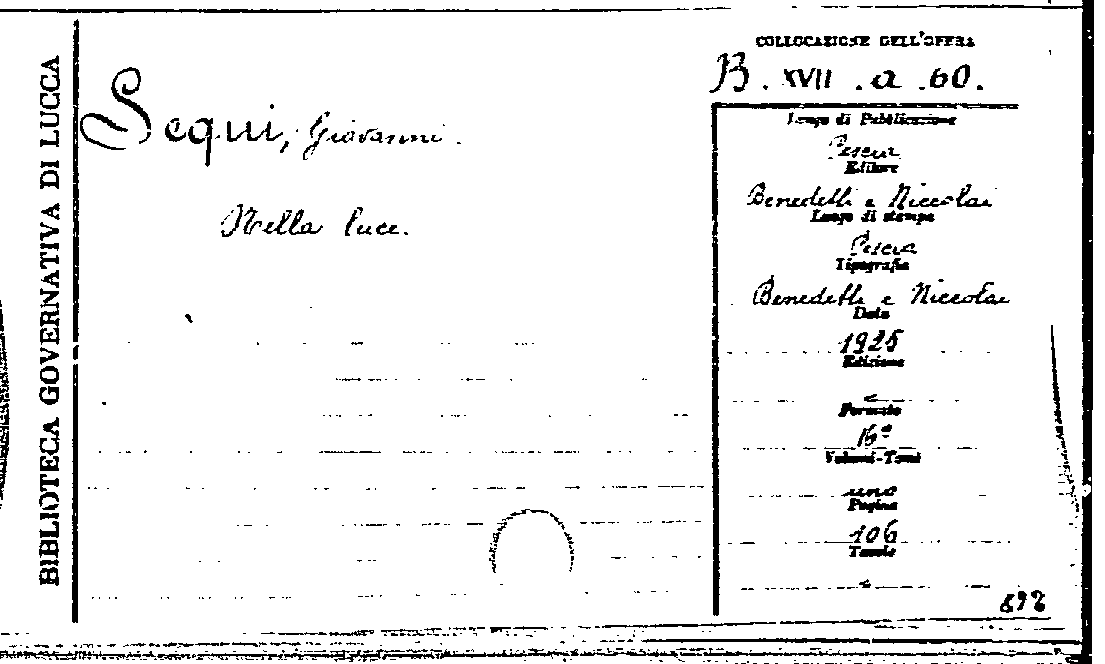 BIBLIOTECA GOVERNATIVA DI LUCCA
Sequi, Giovanni.
Nella luce.
COLLOCAZIONE DELL'OPERA
B. XVII . a . 60.
Luogo di Pubblicazione
Pescia
Editore
Benedetti e Niccolai
Luogo di stampa
Pescia
Tipografia
Benedetti e Niccolai
Data
1925
Edizione
Formato
16º
Volumi-Tomi
uno
Pagine
106
Tavole